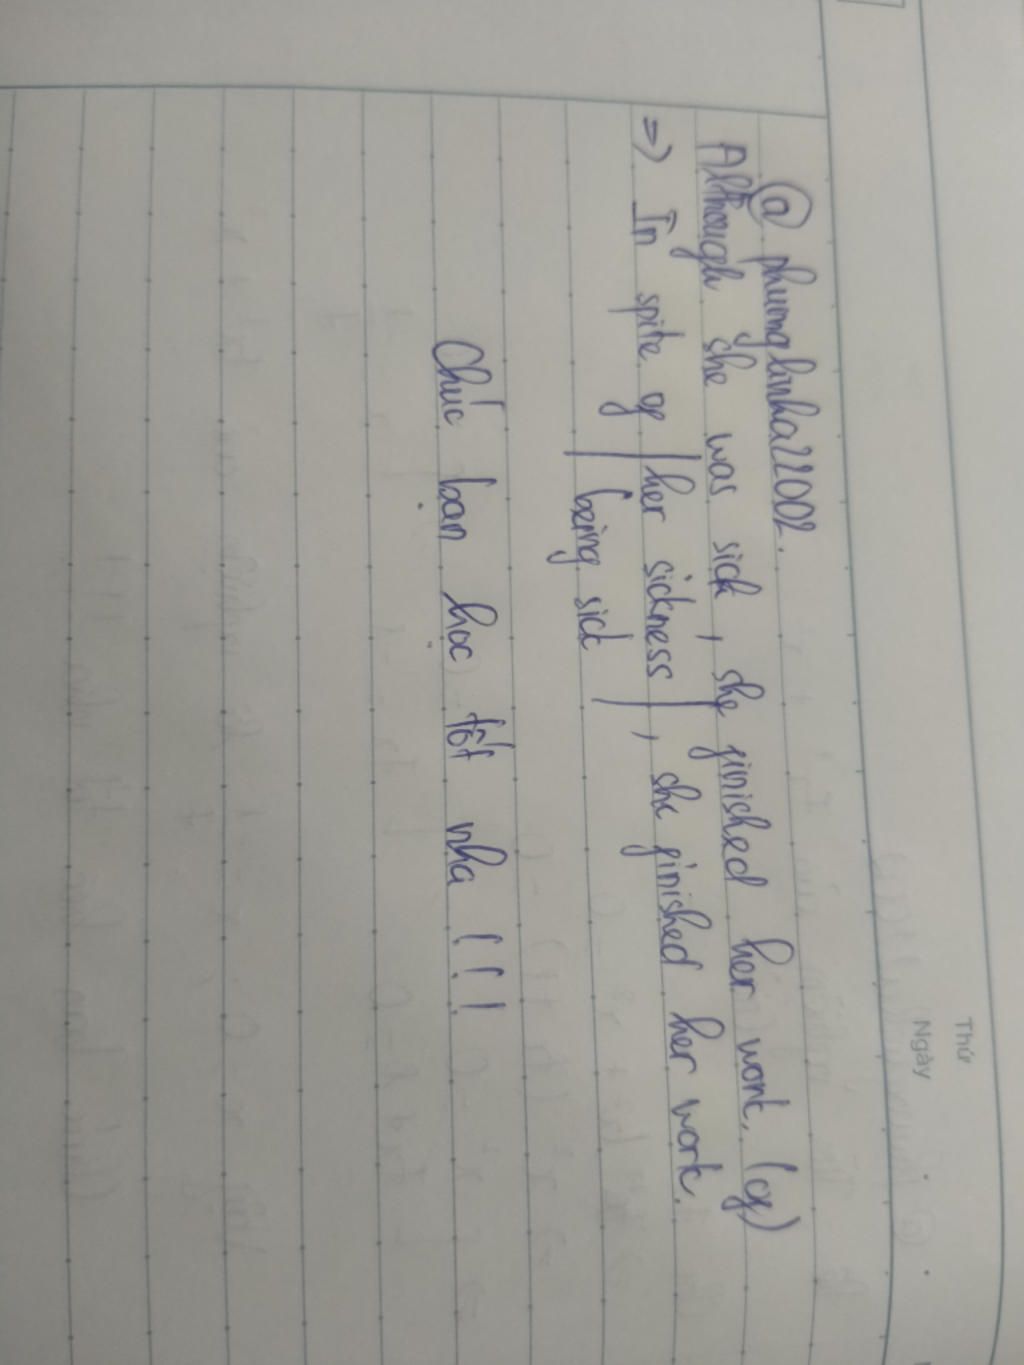 Thứ
Ngày
@ phuonglinha22002.
Although she was sick, she finished her work. (of)
=> In spite of | her sickness |, she finished her work.
being sick
Chúc bạn học tốt nha !!!